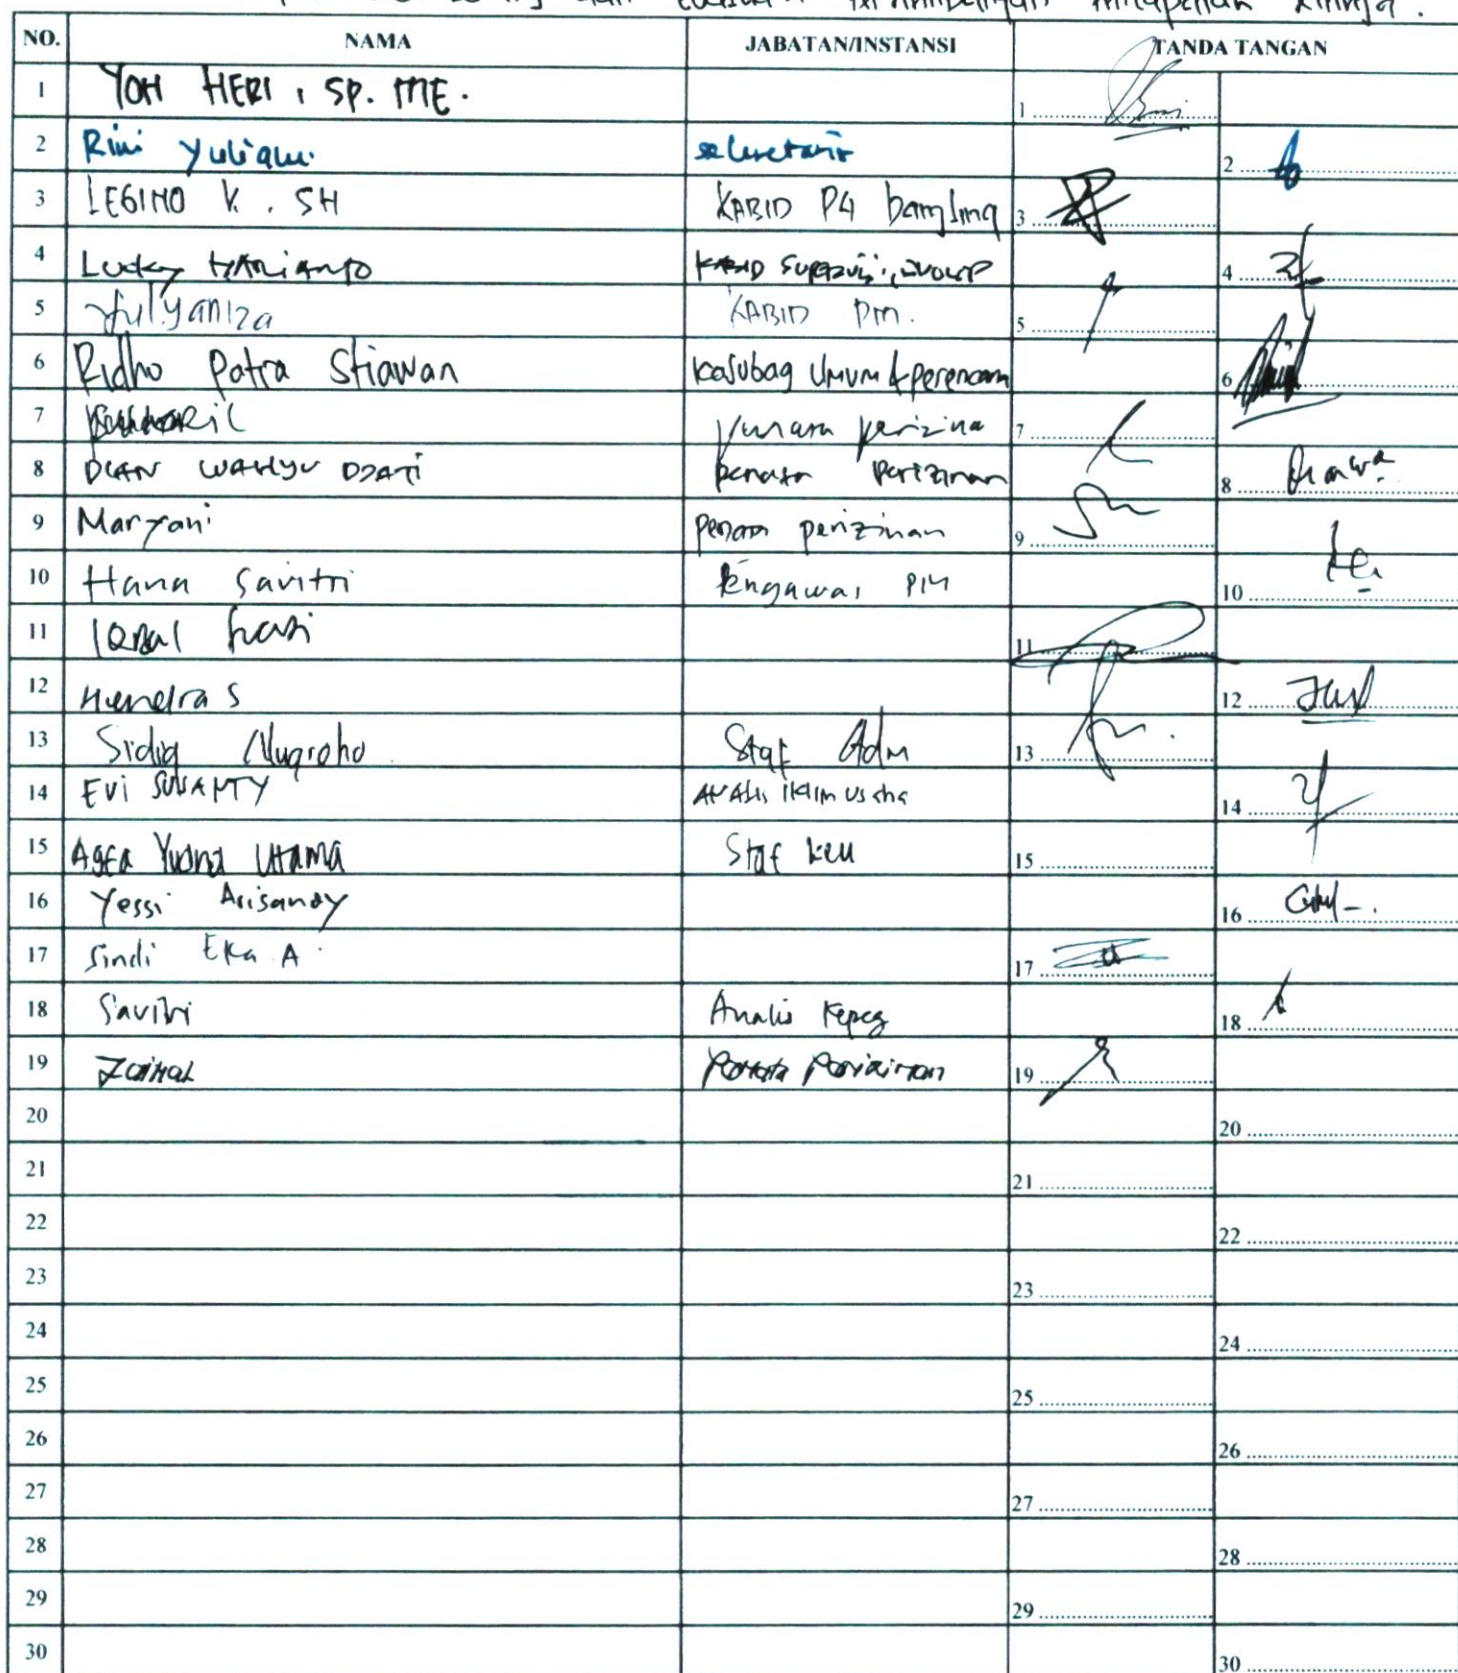 NO. NAMA JABATAN/INSTANSI TANDA TANGAN
1 YOH HERI, SP. ME. 1
2 Rini Yuliani sekretaris 2
3 LEGINO K. SH KABID P4 bangling 3
4 Lucky HARIANTO KABID 4
5 Julyaniza KABID PM. 5
6 Ridho Patra Stiawan Kasubag Umum & perencan 6
7 perizina 7
8 DIAN WAHYU DJATI penata perizinan 8
9 Maryani penata perizinan 9
10 Hana Savitri Pengawas PM 10
11 Iqbal 11
12 Hendra S 12
13 Sidiq Nugroho Staf Adm 13
14 EVI SUSANTY ANALIS iklim usaha 14
15 Agfa Yudha Utama Staf keu 15
16 Yessi Arisandy 16
17 Sindi Eka A 17
18 Savitri Analis Kepeg 18
19 Zainal Penata Perizinan 19
20 20
21 21
22 22
23 23
24 24
25 25
26 26
27 27
28 28
29 29
30 30